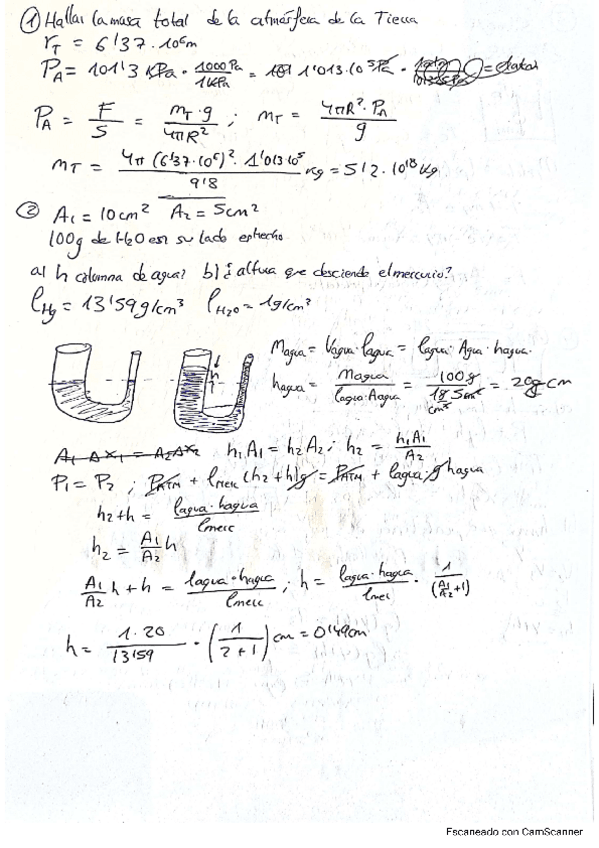 ① Hallar la masa total de la atmósfera de la Tierra
r_T = 6'37·10⁶m
P_A = 101'3 KPa · 1000 Pa / 1 KPa = 1'013·10⁵ Pa ·
P_A = F/S = m_T·g / 4πR² ; m_T = 4πR²·P_A / g
m_T = 4π(6'37·10⁶)²·1'013·10⁵ / 9'8 kg = 5'2·10¹⁸ kg
② A₁ = 10cm² A₂ = 5cm²
100g de H₂O en su lado estrecho
a) h columna de agua? b) ¿altura que desciende el mercurio?
ρ_Hg = 13'59 g/cm³ ρ_H₂O = 1g/cm³
h
M_agua = V_agua·ρ_agua = ρ_agua·A_agua·h_agua.
h_agua = M_agua / ρ_agua·A_agua = 100g / 1g 5cm² cm³ = 20 cm
A₁ Δx₁ = A₂Δx₂ h₁A₁ = h₂A₂; h₂ = h₁A₁ / A₂
P₁ = P₂ ; P_ATM + ρ_merc (h₂+h)g = P_ATM + ρ_agua·g h_agua
h₂+h = ρ_agua·h_agua / ρ_merc
h₂ = A₁/A₂ h
A₁/A₂ h + h = ρ_agua·h_agua / ρ_merc ; h = ρ_agua·h_agua / ρ_mer · 1 / (A₁/A₂ +1)
h = 1·20 / 13'59 · (1 / 2+1) cm = 0'49cm
Escaneado con CamScanner